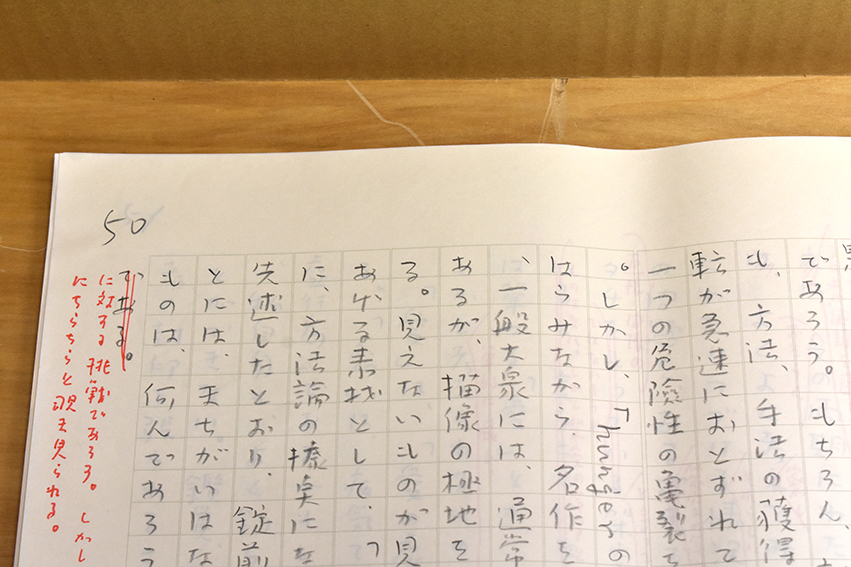 50
であろう。もちろん、
も、方法、手法の獲得
転が急速におとずれて
一つの危険性の亀裂を
。しかし、Thungerの
はらみながら、名作を
、一般大衆には、通常
あるが、描像の極地を
る。見えないものが見
あげる素材として、
に、方法論の標臭にな
先述したとおり、錠前
とには、まちがいはな
ものは、何んであろう
である。
に対する挑戦であろう。しかし
にちらちらと現ま見られる。